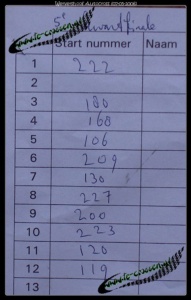 5e kwartfinale
Start nummer Naam
1 222
2
3 180
4 168
5 106
6 209
7 130
8 227
9 200
10 223
11 120
12 119
13